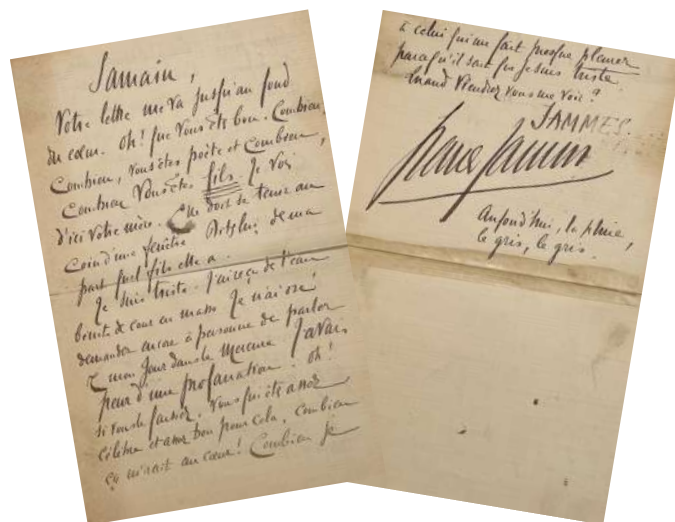 Samain,
Votre lettre me va jusqu'au fond
du cœur. Oh! que vous êtes bon. Combien,
Combien, vous êtes poète et Combien,
Combien vous êtes fils. Je vois
d'ici votre mère. Elle doit se tenir au
coin d'une fenêtre. Dites lui de ma
part quel fils elle a.
Je suis triste. J'ai reçu de l'eau
bénite de cour en masse. Je n'ai osé
demander encore à personne de parler
de mon Jour dans le Mercure. J'avais
peur d'une profanation. Oh!
si vous le faisiez, vous qui êtes assez
célèbre et assez bon pour cela, combien
ça m'irait au cœur! Combien je
à celui qui me fait presque pleurer
parce qu'il sait que je suis triste.
Quand viendrez vous me voir?
JAMMES.
Francis Jammes
Aujourd'hui, la pluie,
le gris, le gris.